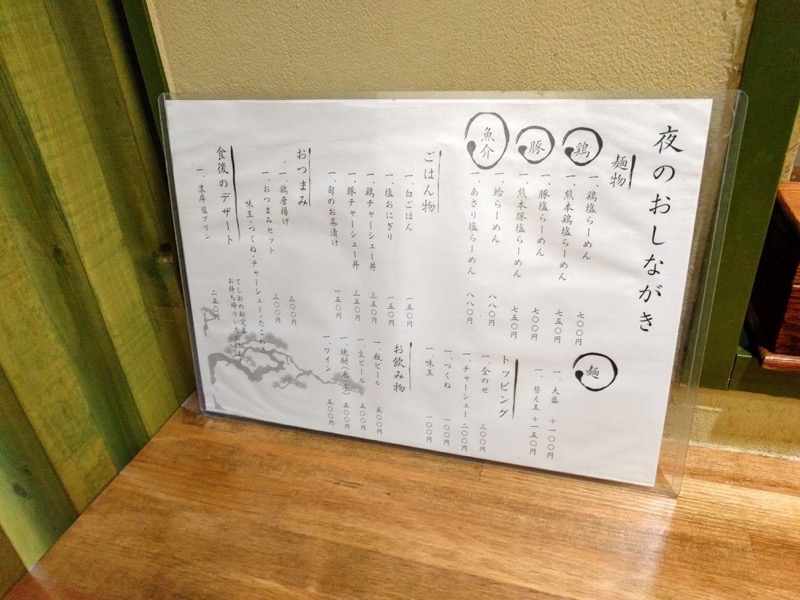 夜のおしながき
麺物
鶏
一、鶏塩らーめん 七〇〇円
一、熊本鶏塩らーめん 七五〇円
豚
一、豚塩らーめん 七〇〇円
一、熊本豚塩らーめん 七五〇円
魚介
一、蛤らーめん 八八〇円
一、あさり塩らーめん 八八〇円
麺
一、大盛 +一〇〇円
一、替え玉 +一五〇円
トッピング
一、全のせ 三〇〇円
一、チャーシュー 二〇〇円
一、つくね 一〇〇円
一、味玉 一〇〇円
ごはん物
一、白ごはん 一五〇円
一、塩おにぎり 一五〇円
一、鶏チャーシュー丼 三五〇円
一、豚チャーシュー丼 三五〇円
一、旬のお茶漬け 一五〇円
お飲み物
一、瓶ビール 五〇〇円
一、生ビール 五〇〇円
一、焼酎(麦・芋) 五〇〇円
一、ワイン 五〇〇円
おつまみ
一、鶏唐揚げ 三〇〇円
一、おつまみセット 三〇〇円
味玉・つくね・チャーシュー・たこ
食後のデザート
一、濃厚塩プリン 二五〇円
てしおの新定番
お持ち帰り